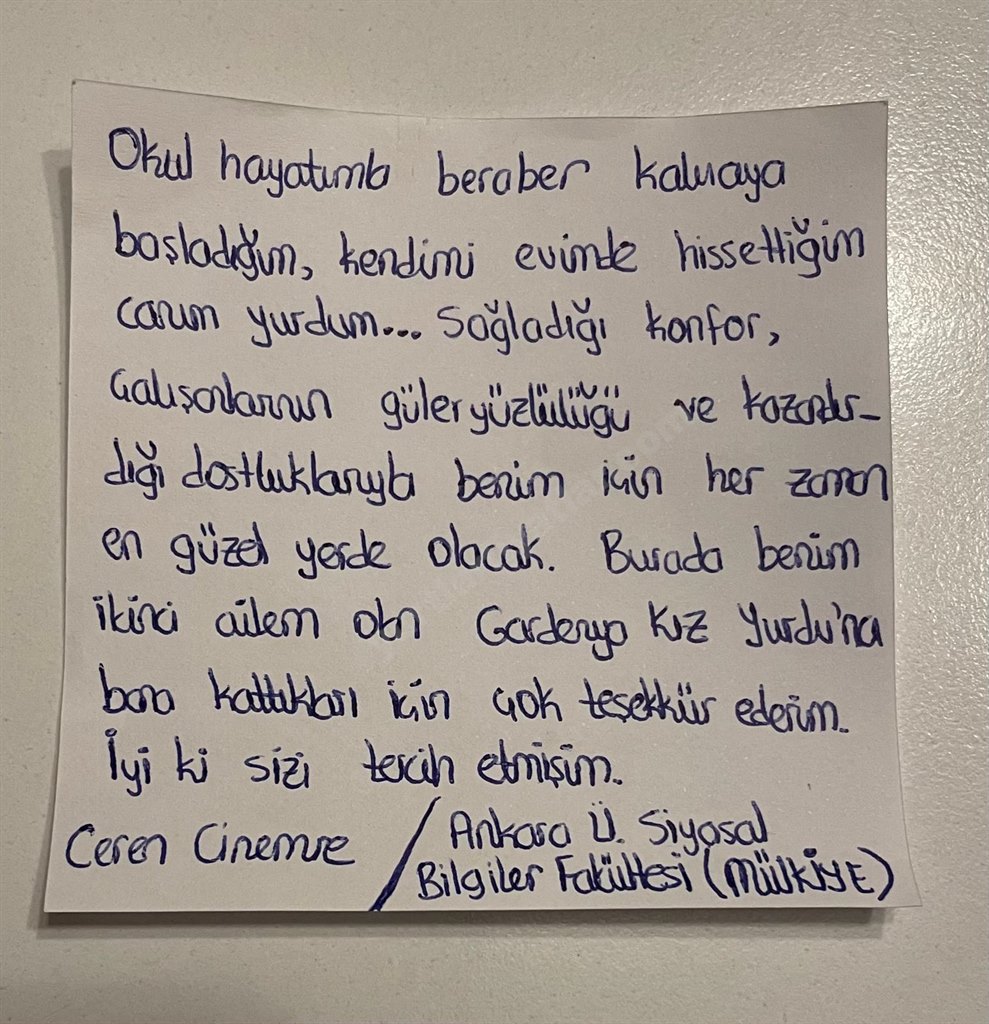 Okul hayatımla beraber kalmaya
başladığım, kendimi evimde hissettiğim
canım yurdum... Sağladığı konfor,
çalışanlarının güleryüzlülüğü ve kazandır-
dığı dostluklarıyla benim için her zaman
en güzel yerde olacak. Burada benim
ikinci ailem olan Gardenya Kız Yurdu'na
bana kattıkları için çok teşekkür ederim.
İyi ki sizi tercih etmişim.
Ceren Cinemre / Ankara Ü. Siyasal
Bilgiler Fakültesi (MÜLKİYE)